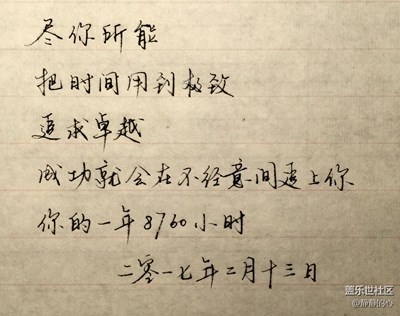 尽你所能
把时间用到极致
追求卓越
成功就会在不经意间追上你
你的一年8760小时
二零一七年二月十三日
盖乐世社区